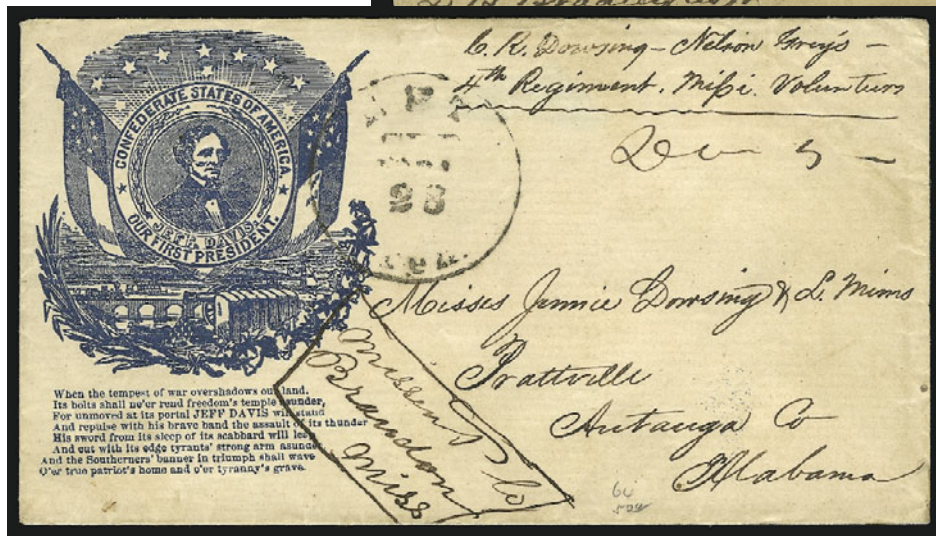 C. R. Dowsing - Nelson Grey's -
4th Regiment. Missi. Volunteers
Due 5
CONFEDERATE STATES OF AMERICA.
JEFF. DAVIS.
OUR FIRST PRESIDENT.
28
Misses Jennie Dowsing & L. Mims
Prattville
Autauga Co
Alabama
Missent to
Brandon
Miss
When the tempest of war overshadows our land.
Its bolts shall ne'er rend freedom's temple asunder,
For unmoved at its portal JEFF DAVIS will stand
And repulse with his brave band the assault of its thunder
His sword from its sleep of its scabbard will leap
And cut with its edge tyrants' strong arm asunder
And the Southerners' banner in triumph shall wave
O'er true patriot's home and o'er tyranny's grave.